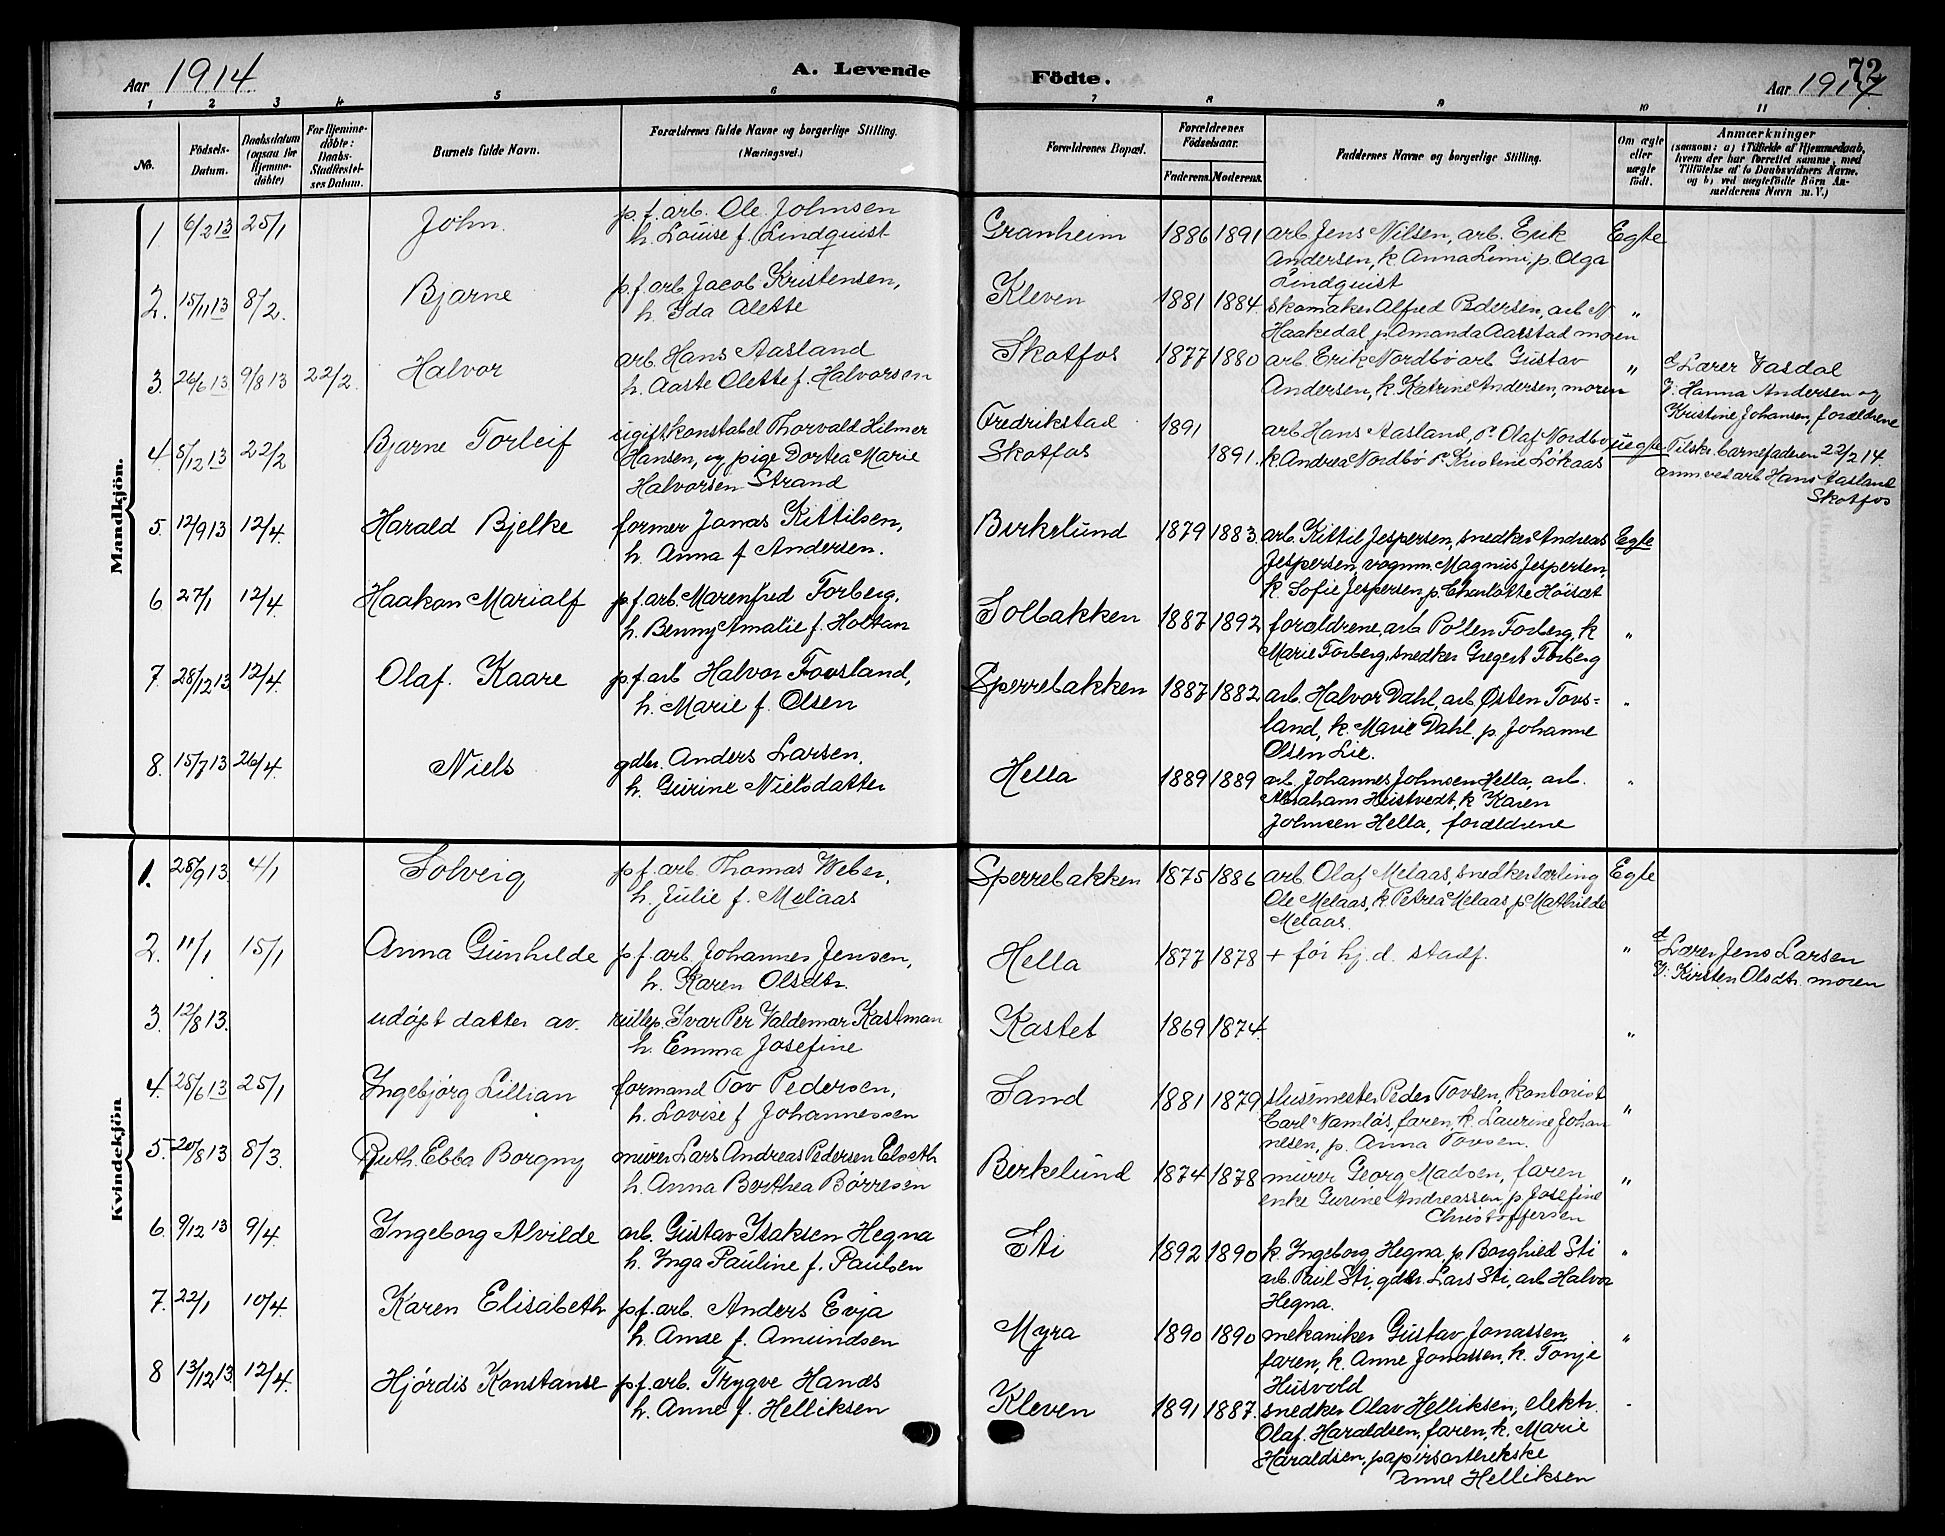 Aar 1914. A. Levende
1 2 3 4 5 6
No. Födsels-Datum. Daabsdatum (ogsaa for Hjemme-döbte) For Hjemme-döbte: Daabs-Stadfæstel-ses Datum. Barnets fulde Navn. Forældrenes fulde Navne og borgerlige Stilling. (Næringsvei.)
Mandkjön.
1. 6/2 13 25/1 John. p.f.arb. Ole Johnsen
h. Louise f. Lindquist
2. 15/11 13 8/2. Bjarne p.f.arb Jacob Kristensen,
h. Ida Alette
3. 26/6 13 9/8 13 22/2. Halvor arb. Hans Aasland
h. Aaste Olette f. Halvorsen
4. 5/12 13 22/2 Bjarne Torleif ugift konstabel Thorvald Hilmer
Hansen, og pige Dortea Marie
Halvorsen Strand
5. 12/9 13 12/4. Harald Bjelke former Jonas Kittilsen,
h. Anna f Andersen.
6 27/1 12/4. Haakon Marialf p.f.arb. Marenfred Forberg,
h. Benny Amalie f. Holtan
7. 28/12 13 12/4. Olaf. Kaare p.f.arb Halvor Tovsland,
h. Marie f. Olsen
8. 15/7 13 26/4. Niels gdbr. Anders Larsen,
h. Gurine Nielsdatter
Kvindekjön
1. 28/9 13. 4/1 Solveig p.f.arb. Thomas Weber,
h. Julie f. Melaas
2. 11/1 15/1 Anna Gunhilde p.f.arb. Johannes Jensen,
h. Karen Olsdtr.
3. 12/8 13. udöpt datter av. Ivar Per Valdemar Kastman
h. Emma Josefine
4. 28/6 13 25/1 Ingebjörg Lillian formand Tov Pedersen,
h. Lovise f Johannessen
5. 20/8 13 8/3. Ruth. Ebba Borgny murer Lars Andreas Pedersen Elseth
h. Anna Berthea Börresen
6. 9/12 13 9/4. Ingeborg Alvilde arb. Gustav Isaksen Hegna
h. Inga Pauline f. Paulsen
7. 22/1 10/4. Karen Elisabeth p.f.arb. Anders Evja
h. Anne f. Amundsen
8 13/12 13 12/4. Hjördis Konstanse p.f.arb. Trygve Hanås
h. Anne f. Helliksen
Födte. Aar 1914 72
7 8 9 10 11
Forældrenes Bopæl. Forældrenes Födselsaar. Faderens. Moderens. Faddernes Navne og borgerlige Stilling. Om ægte eller uægte födt. Anmærkninger
(saasom: a) i Tilfælde af Hjemmedaab,
hvem der har forrettet samme, med
Tilföielse af to Daabsvidners Navne,
og b) ved uægtefödte Börn An-
melderens Navn m. V.)
Granheim 1886 1891 arb Jens Nilsen, arb. Erik Egte
Andersen, k. Anna Lemi, p. Olga
Lindquist
Kleven 1881 1884. skomaker Alfred Pedersen, arb N "
Haakedal, p. Amanda Aarstad moren
Skotfos 1877 1880 arb. Erik Nordbö arb Gustav " d. Lærer Vasdal
Andersen, k. Katrine Andersen, moren V: Hanna Andersen og
Kristine Johansen, forældrene
Fredrikstad 1891 arb Hans Aasland, p. Olaf Nordbö uegte Tilskr. barnefaderen 22/2 14.
Skotfos 1891. k. Andrea Nordbö p. Kristine Lökaas anm ved arb Hans Aasland
Skotfos
Birkelund 1879 1883. arb. Kittil Jespersen, snedker Andreas Egte
Jespersen, vognm. Magnus Jespersen,
k. Sofie Jespersen p. Charlotte Höisæt
Solbakken 1887 1892 forældrene, arb Forberg, k "
Marie Forberg, snedker Gregert Forberg
Sperrebakken 1887 1882 arb. Halvor Dahl, arb Østen Tovs- "
land, k. Marie Dahl, p. Johanne
Olsen Lie.
Hella 1889 1889 arb. Johannes Johnsen Hella, arb. "
Abraham Heistvedt, k. Karen
Johnsen Hella, forældrene
Sperrebakken 1875 1886 arb. Olaf Melaas, snedkerlærling Egte
Ole Melaas, k. Petrea Melaas p Mathilde
Melaas.
Hella 1877 1878 + før hj. d. stadf. " d. Lærer Jens Larsen
V: Kirsten Olsdtr. moren
Kastet 1869 1874. "
Sand 1881 1879 slusemester Peder Tovsen, kontorist "
Carl Namlös, faren, k. Laurine Johan
nesen, p. Anna Tovsen.
Birkelund 1874 1878 murer Georg Madsen, faren "
enke Gurine Andreassen, p. Josefine
Christoffersen
Sti 1892 1890 k. Ingeborg Hegna, p Borghild Sti "
arb. Paul Sti, gdbr. Lars Sti, arb Halvor
Hegna.
Myra 1890 1890 mekaniker Gustav Jonassen, "
faren, k. Anne Jonassen, k. Tonje
Husvold
Kleven 1891 1887. snedker Olav Helliksen, elektr. "
Olaf. Haraldsen, faren, k. Marie
Haraldsen,
Anne Helliksen